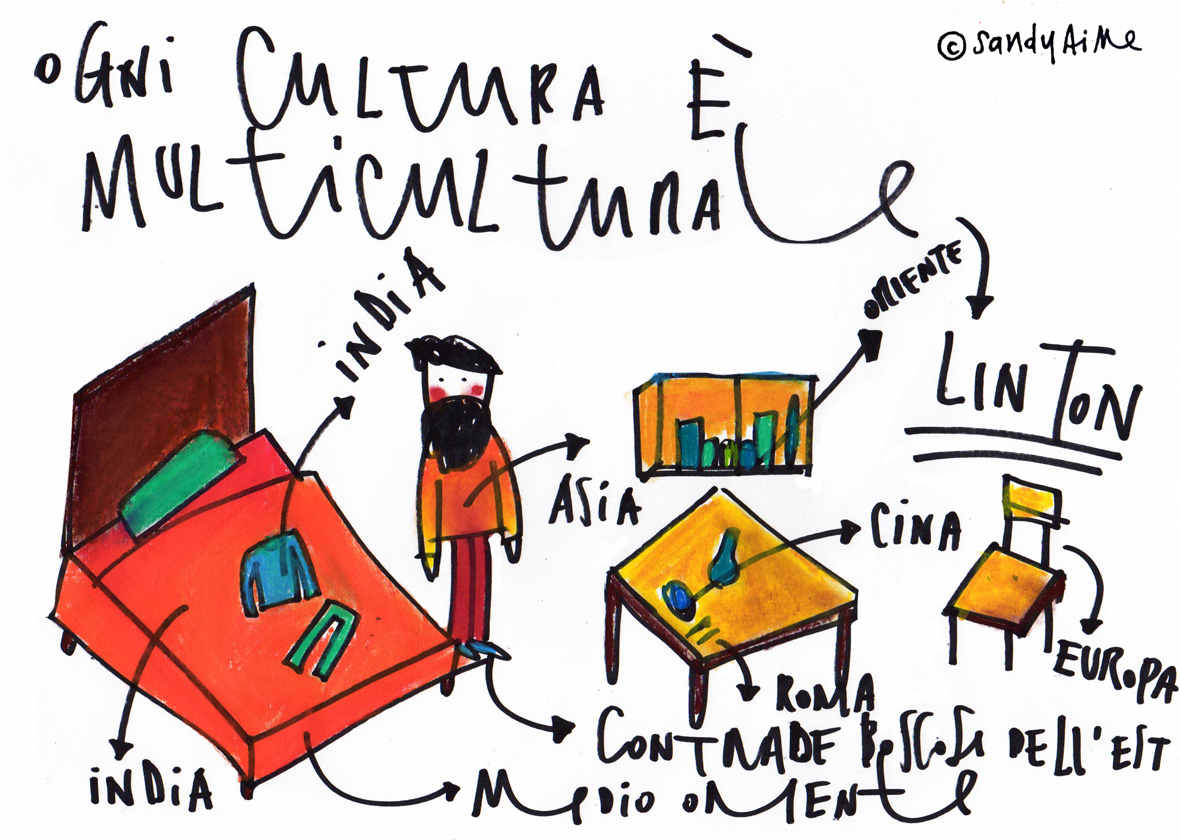 © SandyAiMe
OGNi CULTURA È
MULTiCULTURALe
ORIENTE
iNDiA
LINTON
ASiA
CiNA
EUROPA
ROMA
CONTRADE BOSCOSE DELL'EST
iNDiA
MeDio oRiENTe